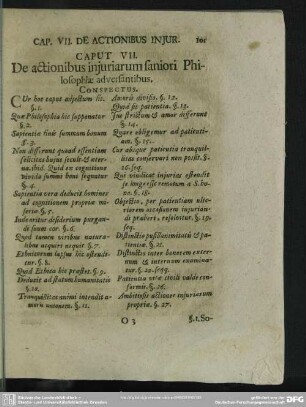 CAP. VII. DE ACTIONIBUS INJUR. 101
CAPUT VII.
De actionibus injuriarum saniori Phi-
losophiæ adversantibus.
CONSPECTUS.
CUr hoc caput adjectum sit.
§. 1.
Quæ Philosophia hic supponatur
§. 2.
Sapientia finis summum bonum
§. 3.
Non differunt quoad essentiam
felicitas hujus seculi & æter-
na. ibid. Quid ex cognitione
summi boni sequatur
§. 4.
Sapientia vera deducit homines
ad cognitionem propriæ mi-
seriæ §. 5.
Inde oritur desiderium purgan-
di suum cor. §. 6.
Quid tamen viribus natura-
libus acquiri nequit §. 7.
Ethnicorum lapsus hic ostendi-
tur. §. 8.
Quid Ethica hic præstet. §. 9.
Deducit ad statum humanitatis
§. 10.
Tranquillitas animi intendit a-
morem §. 11.
Amoris divisio. §. 12.
Quid sit patientia. §. 13.
Jus strictum & amor differunt
§. 14.
Quare obligemur ad patienti-
am. §. 15.
Cur absque patientia tranquil-
litas conservari non possit. §.
16. seq.
Qui vindicat injurias ostendit
se longe esse remotum a S. bo-
no. §. 18.
Objectio, per patientiam alte-
riorem accensionem injurian-
di præberi, refellitur. §. 19.
seq.
Distinctio pusillanimitatis & pa-
tientiæ. §. 21.
Distinctio inter honorem exter-
num & internum examina-
tur. §. 22. seqq.
Patientia vitæ civili valde con-
formis. §. 26.
Ambitioso actiones injuriarum
propriæ. §. 27.
O 3 §. 1. So-